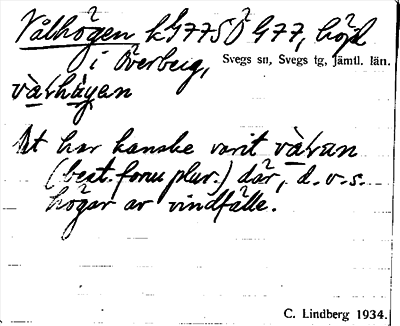 Vålhögen kG7750 G77, höjd
i Överberg, Svegs sn, Svegs tg, Jämtl. län.
vàrhä̀gen
Det har kanske varit vàran
(best. form plur.) där, d.v.s.
högar av vindfälle.
C. Lindberg 1934.